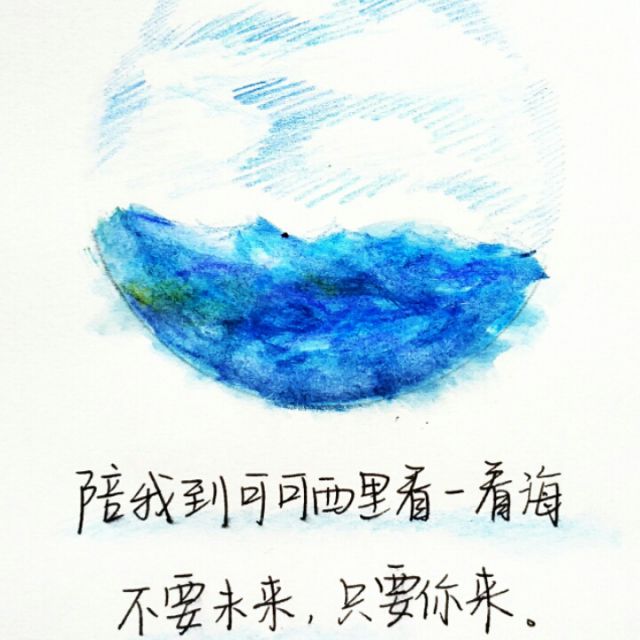 陪我到可可西里看一看海
不要未来，只要你来。